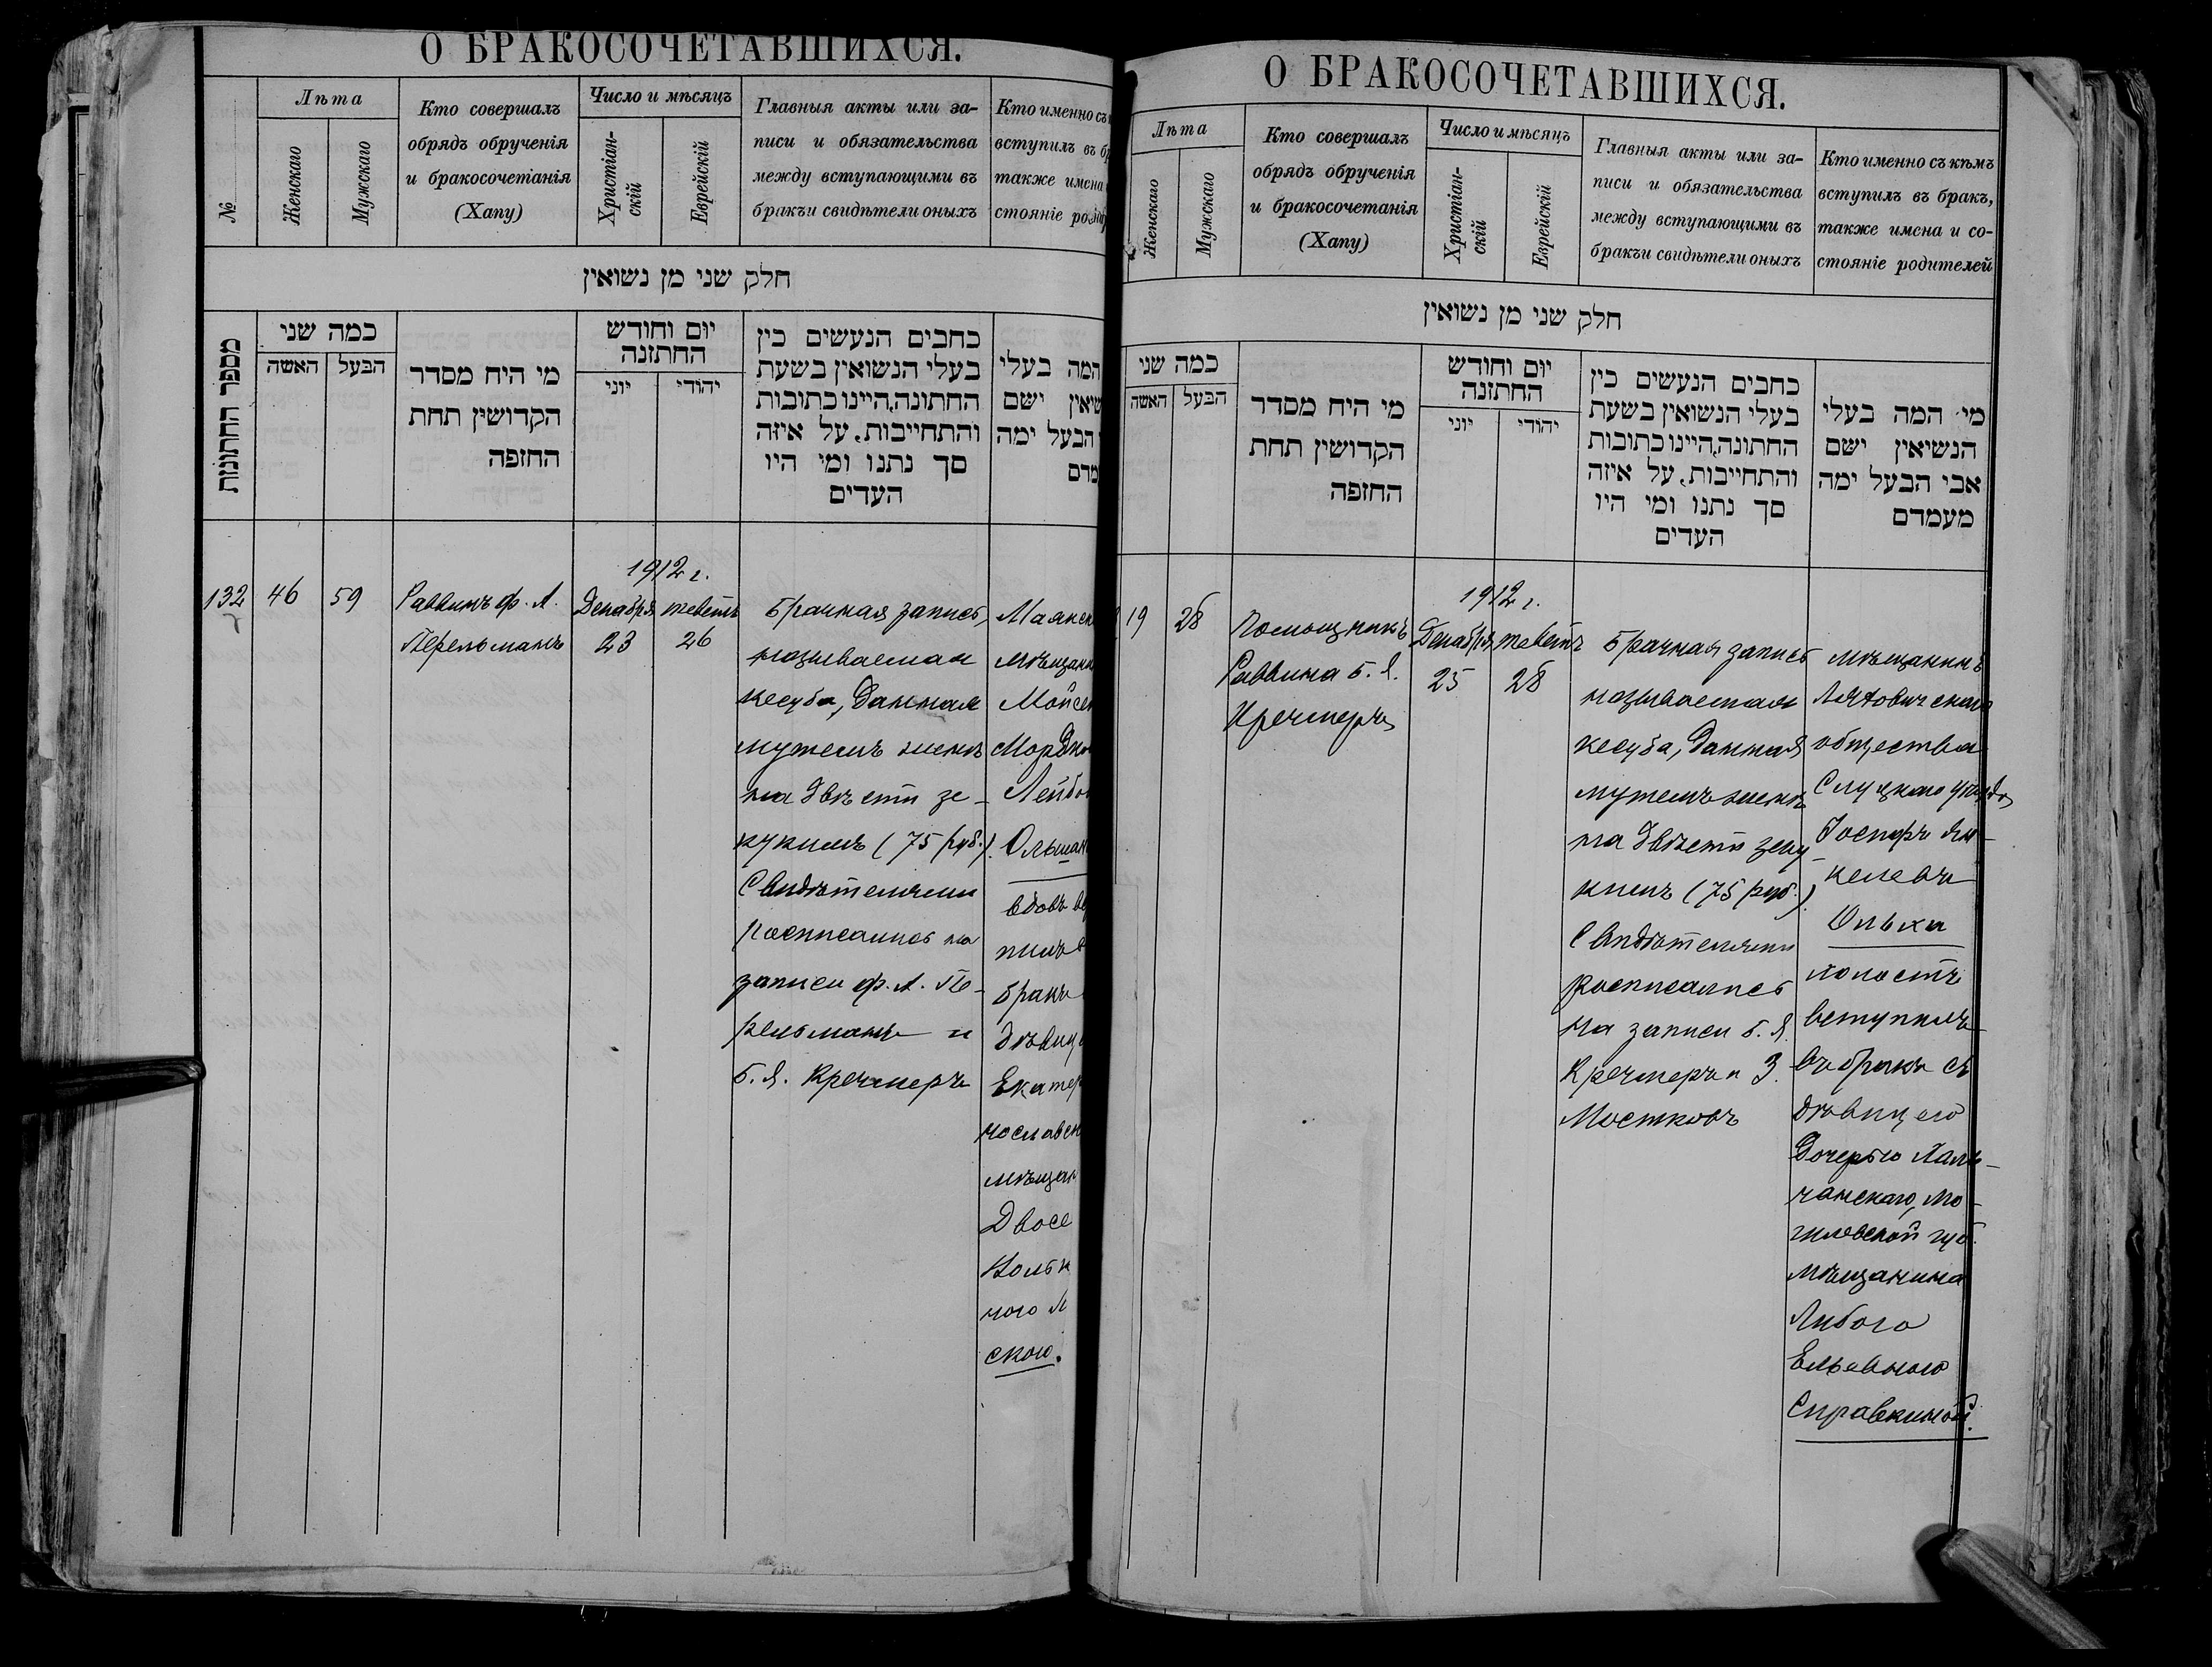 О БРАКОСОЧЕТАВШИХСЯ.
№
Лѣта
Женскаго
Мужскаго
Кто совершалъ
обрядъ обрученія
и бракосочетанія
(Хапу)
Число и мѣсяцъ
Христіан-
скій
Еврейскій
Главныя акты или за-
писи и обязательства
между вступающими въ
бракъи свидѣтели оныхъ
Кто именно съ
вступилъ въ
также имена
стояніе
חלק שני מן נשואין
מספר החתונות
כמה שני
האשה
הבעל
מי היח מסדר
הקדושין תחת
החזפה
יום וחודש
החתזנה
יוני
יהודי
כחבים הנעשים כין
בעלי הנשואין בשעת
החתונה,היינו כתובות
והתחייבות, על איזה
סך נתנו ומי היו
העדים
המה בעלי
ישם
הבעל ימה
132
46
59
Раввинъ ф. Л.
Перельманъ
1912 г.
Декабря
23
тевета
26
Брачная запись,
называемая
кесуба, данная
мужемъ женѣ
на двѣсти зе-
кукимъ (75 руб.).
Свидѣтелями
росписались на
записи ф. Л. Пе-
рельманъ и
Б. Я. Кречмеръ
вдовъ
бракъ
Двосе
ского.
О БРАКОСОЧЕТАВШИХСЯ.
Лѣта
Женскаго
Мужскаго
Кто совершалъ
обрядъ обрученія
и бракосочетанія
(Хапу)
Число и мѣсяцъ
Христіан-
скій
Еврейскій
Главныя акты или за-
писи и обязательства
между вступающими въ
бракъи свидѣтели оныхъ
Кто именно съ кѣмъ
вступилъ въ бракъ,
также имена и со-
стояніе родителей
חלק שני מן נשואין
כמה שני
האשה
הבעל
מי היח מסדר
הקדושין תחת
החזפה
יום וחודש
החתזנה
יוני
יהודי
כחבים הנעשים כין
בעלי הנשואין בשעת
החתונה,היינו כתובות
והתחייבות, על איזה
סך נתנו ומי היו
העדים
מי המה בעלי
הנשיאין ישם
אבי הבעל ימה
מעמדם
19
28
Помощникъ
Раввина Б. Я.
Кречмеръ
1912 г.
Декабря
25
тевета
28
Брачная запись
называемая
кесуба, данная
мужемъ женѣ
на двѣсти зеку-
кимъ (75 руб.)
Свидѣтелями
росписались
на записи Б. Я.
Кречмеръ и З.
Мостковъ
мѣщанинъ
Ляховичскаго
общества
Слуцкаго уѣзда,
Іосифъ Ян-
келевъ
Ольха
холостъ
вступилъ
въ бракъ съ
дѣвицею
дочерью
чанскаго, Мо-
гилевской губ.
мѣщанина
Либою
Ельевною
Справкиной.